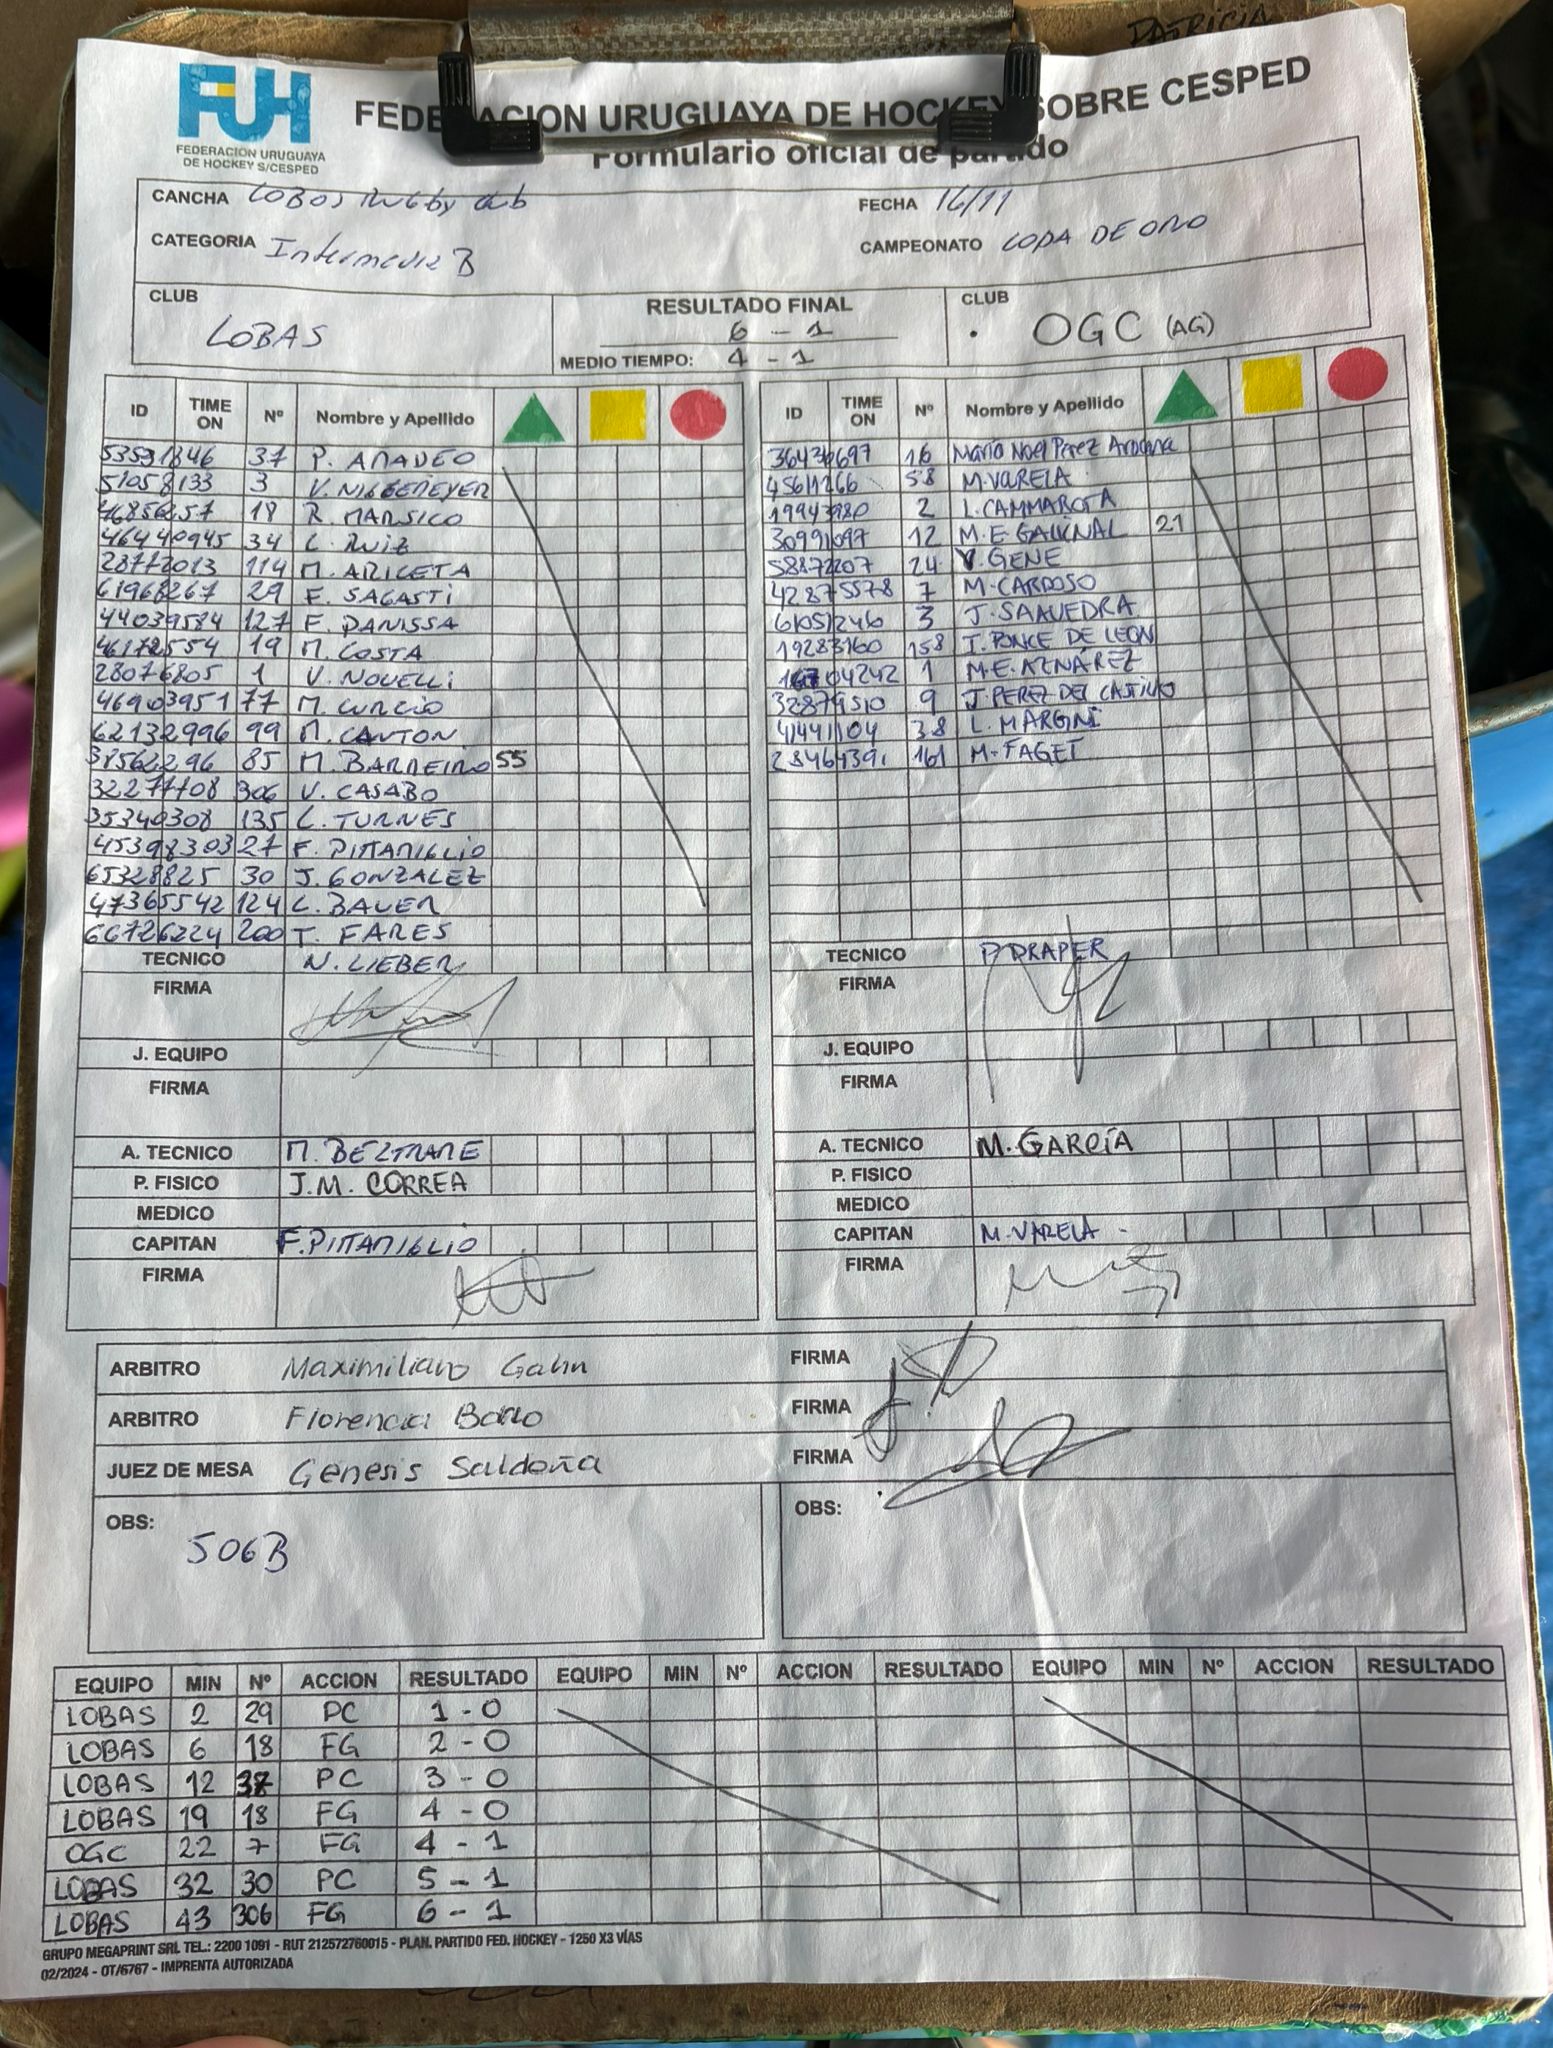 PATRICIA
FUH
FEDERACION URUGUAYA
DE HOCKEY S/CESPED
FEDERACION URUGUAYA DE HOCKEY SOBRE CESPED
Formulario oficial de partido
CANCHA LOBOS Rugby club FECHA 16/11
CATEGORIA Intermedia B CAMPEONATO COPA DE ORO
CLUB LOBAS RESULTADO FINAL 6 - 1 CLUB OGC (AG)
MEDIO TIEMPO: 4 - 1
ID TIME ON Nº Nombre y Apellido ID TIME ON Nº Nombre y Apellido
53591846 37 P. AMADEO 16 María Noel Perez Arocena
51058133 3 V. NIGGEMEYER 45611266 58 M. VARELA
46856257 18 R. MARSICO 19943980 2 L. CAMMAROTA
46440945 34 L. RUIZ 30991097 12 M.E. GALLINAL 21
28772013 114 M. ARICETA 58872207 24 V. GENE
61968267 29 F. SAGASTI 42875578 7 M. CARDOSO
44039584 127 F. PANISSA 61051246 3 J. SAAVEDRA
46172554 19 M. COSTA 19283160 158 I. PONCE DE LEON
28076805 1 V. NOVELLI 1 M.E. AZNÁREZ
46903951 77 M. CURCIO 32879510 9 J. PEREZ DEL CASTILLO
62132996 99 M. CANTON 41441104 38 L. MARGINI
38562296 85 M. BARREIRO 55 28464391 161 M. FAGET
32277708 306 V. CASABO
35340308 135 L. TURNES
45398303 27 F. PITTAMIGLIO
65328825 30 J. GONZALEZ
47365542 124 L. BAUER
66726224 200 T. FARES
TECNICO N. LIEBER TECNICO P. DRAPER
FIRMA FIRMA
J. EQUIPO J. EQUIPO
FIRMA FIRMA
A. TECNICO M. BELTRAME A. TECNICO M. GARCÍA
P. FISICO J.M. CORREA P. FISICO
MEDICO MEDICO
CAPITAN F. PITTAMIGLIO CAPITAN M. VARELA
FIRMA FIRMA
ARBITRO Maximiliano Gahn FIRMA
ARBITRO Florencia FIRMA
JUEZ DE MESA Genesis Saldoña FIRMA
OBS: 506B OBS:
EQUIPO MIN Nº ACCION RESULTADO EQUIPO MIN Nº ACCION RESULTADO EQUIPO MIN Nº ACCION RESULTADO
LOBAS 2 29 PC 1 - 0
LOBAS 6 18 FG 2 - 0
LOBAS 12 37 PC 3 - 0
LOBAS 19 18 FG 4 - 0
OGC 22 7 FG 4 - 1
LOBAS 32 30 PC 5 - 1
LOBAS 43 306 FG 6 - 1
GRUPO MEGAPRINT SRL TEL.: 2200 1091 - RUT 212572760015 - PLAN. PARTIDO FED. HOCKEY - 1250 X3 VÍAS
02/2024 - OT/6767 - IMPRENTA AUTORIZADA